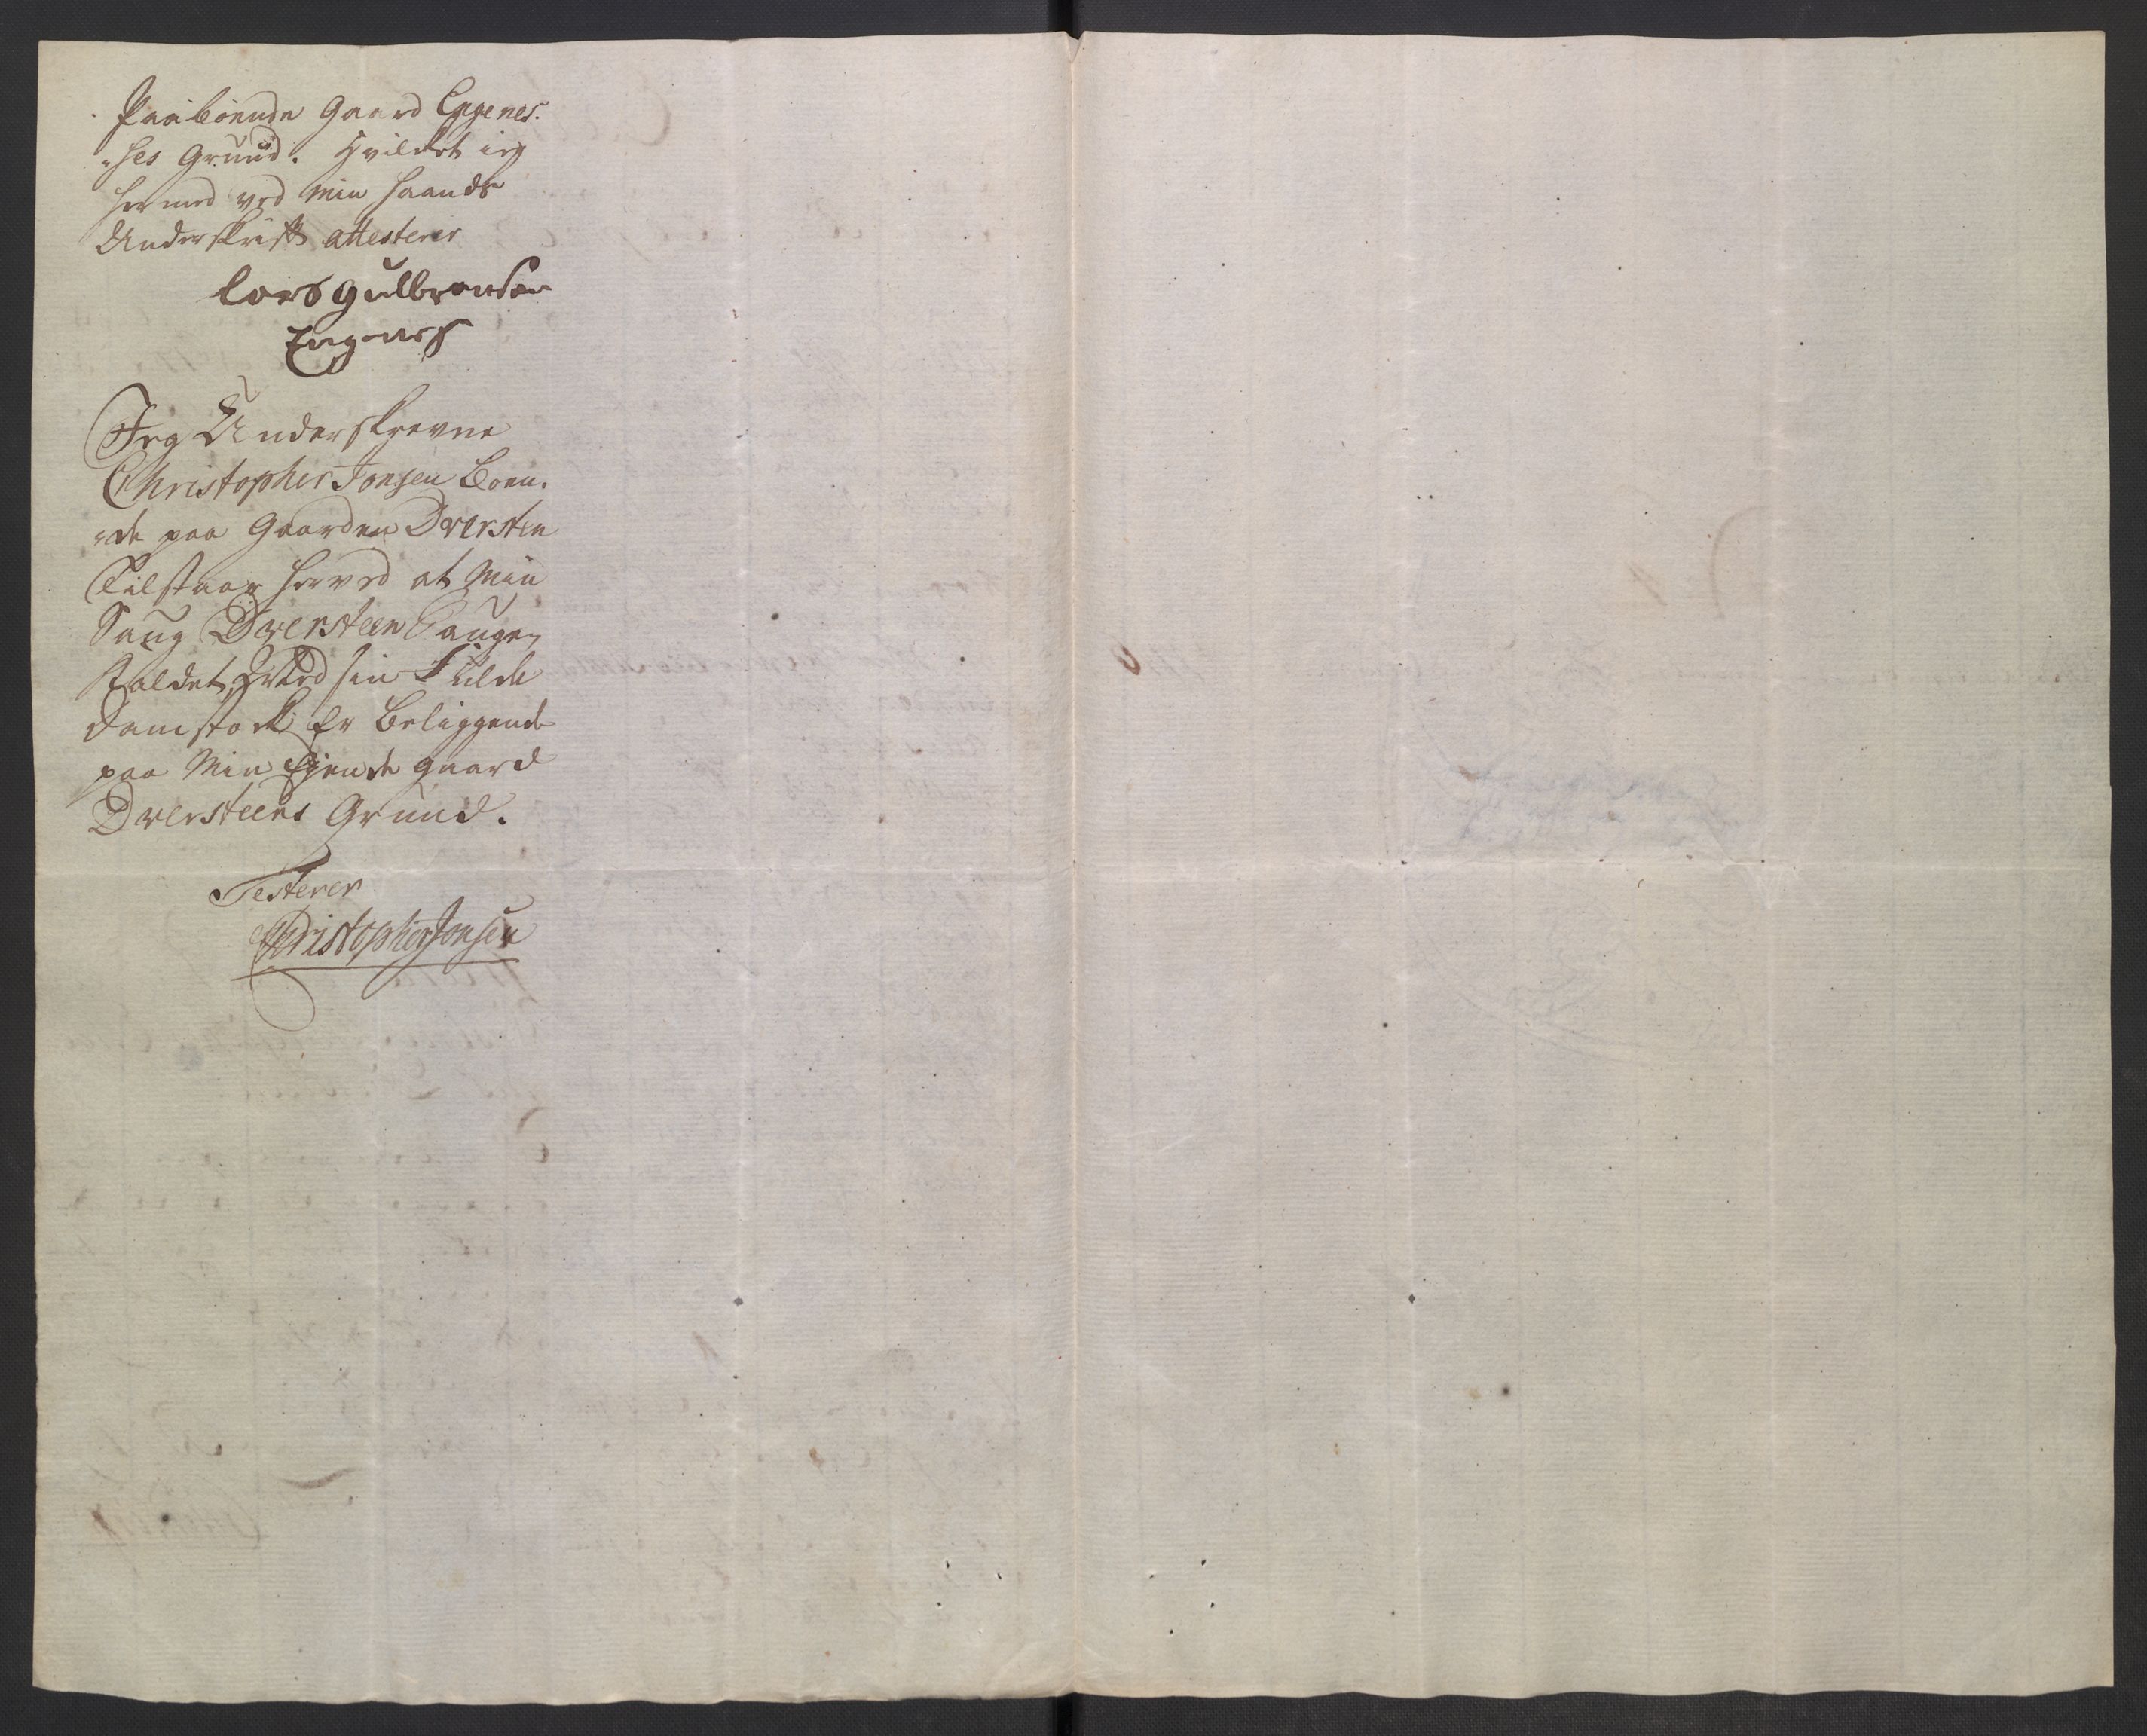 Paaboende Gaard Eggenes-
ses Gruud. Hvilket ieg
hermed ved Min Haands
Underskrift attesterer
Lars gulbransen
Engenes
Jeg Underskrevne
Christopher Jonsen Boen-
de paa Gaarden Dversten
Tilstaar herved at Min
Saug Dversteen Sauge
Kaldet, Med sin Fulde
Damstock Er Beliggende
paa Min Ejende gaard
Dversteens Grund.
Testerer
Christopher Jonsen